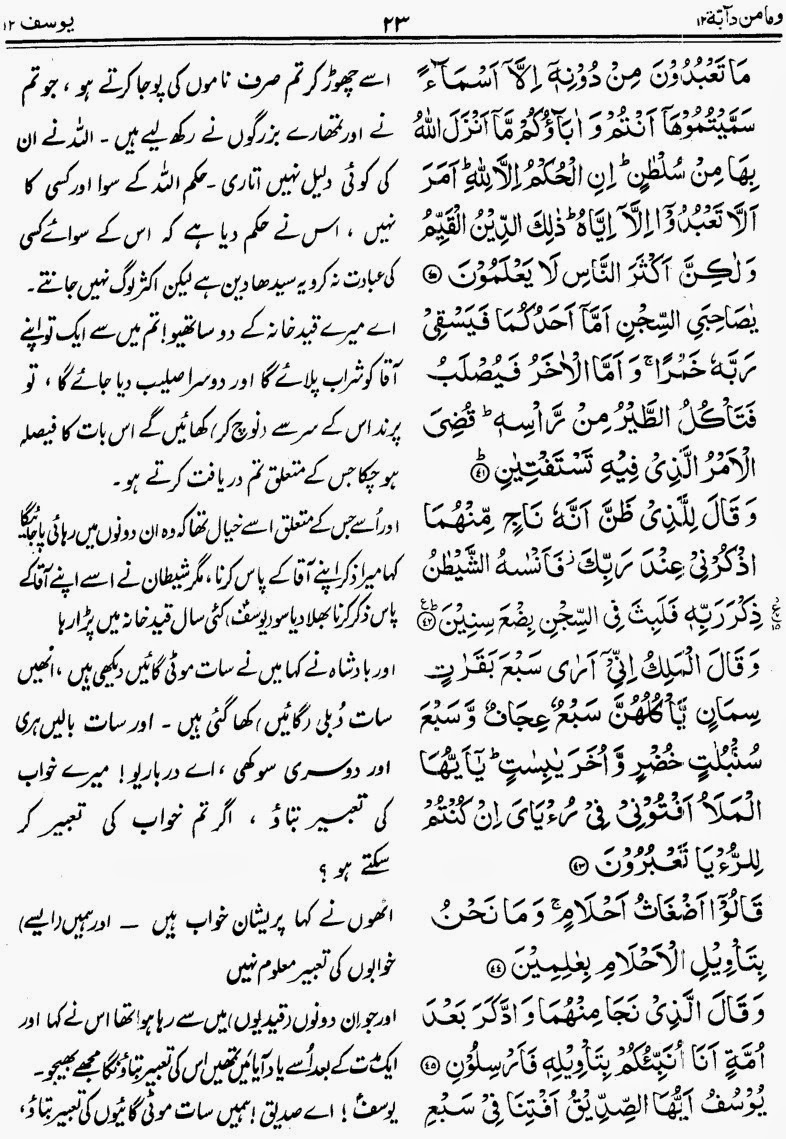 وما من دآبة ۱۲
۲۳
یوسف ۱۲
مَا تَعْبُدُوْنَ مِنْ دُوْنِهٖۤ اِلَّاۤ اَسْمَآءً
سَمَّيْتُمُوْهَاۤ اَنْتُمْ وَ اٰبَآؤُكُمْ مَّاۤ اَنْزَلَ اللّٰهُ
بِهَا مِنْ سُلْطٰنٍ ؕ اِنِ الْحُكْمُ اِلَّا لِلّٰهِ ؕ اَمَرَ
اَلَّا تَعْبُدُوْۤا اِلَّاۤ اِيَّاهُ ؕ ذٰلِكَ الدِّيْنُ الْقَيِّمُ
وَ لٰكِنَّ اَكْثَرَ النَّاسِ لَا يَعْلَمُوْنَ ۴۰
يٰصَاحِبَيِ السِّجْنِ اَمَّاۤ اَحَدُكُمَا فَيَسْقِيْ
رَبَّهٗ خَمْرًا ۚ وَ اَمَّا الْاٰخَرُ فَيُصْلَبُ
فَتَاْكُلُ الطَّيْرُ مِنْ رَّاْسِهٖ ؕ قُضِيَ
الْاَمْرُ الَّذِيْ فِيْهِ تَسْتَفْتِيٰنِ ؕ ۴۱
وَ قَالَ لِلَّذِيْ ظَنَّ اَنَّهٗ نَاجٍ مِّنْهُمَا
اذْكُرْنِيْ عِنْدَ رَبِّكَ ؗ فَاَنْسٰىهُ الشَّيْطٰنُ
ذِكْرَ رَبِّهٖ فَلَبِثَ فِي السِّجْنِ بِضْعَ سِنِيْنَ ؕ ۴۲
وَ قَالَ الْمَلِكُ اِنِّيْۤ اَرٰى سَبْعَ بَقَرٰتٍ
سِمَانٍ يَّاْكُلُهُنَّ سَبْعٌ عِجَافٌ وَّ سَبْعَ
سُنْۢبُلٰتٍ خُضْرٍ وَّ اُخَرَ يٰبِسٰتٍ ؕ يٰۤاَيُّهَا
الْمَلَاُ اَفْتُوْنِيْ فِيْ رُءْيَايَ اِنْ كُنْتُمْ
لِلرُّءْيَا تَعْبُرُوْنَ ۴۳
قَالُوْۤا اَضْغَاثُ اَحْلَامٍ ۚ وَ مَا نَحْنُ
بِتَاْوِيْلِ الْاَحْلَامِ بِعٰلِمِيْنَ ۴۴
وَ قَالَ الَّذِيْ نَجَا مِنْهُمَا وَ ادَّكَرَ بَعْدَ
اُمَّةٍ اَنَا اُنَبِّئُكُمْ بِتَاْوِيْلِهٖ فَاَرْسِلُوْنِ ۴۵
يُوْسُفُ اَيُّهَا الصِّدِّيْقُ اَفْتِنَا فِيْ سَبْعِ
اسے چھوڑ کر تم صرف ناموں کی پوجا کرتے ہو ، جو تم
نے اور تمھارے بزرگوں نے رکھ لیے ہیں ۔ اللہ نے ان
کی کوئی دلیل نہیں اتاری ۔ حکم اللہ کے سوا اور کسی کا
نہیں ، اس نے حکم دیا ہے کہ اس کے سوائے کسی
کی عبادت نہ کرو یہ سیدھا دین ہے لیکن اکثر لوگ نہیں جانتے ۔
اے میرے قید خانہ کے دو ساتھیو! تم میں سے ایک تو اپنے
آقا کو شراب پلائے گا اور دوسرا صلیب دیا جائے گا ، تو
پرند اس کے سر سے (نوچ کر) کھائیں گے اس بات کا فیصلہ
ہو چکا جس کے متعلق تم دریافت کرتے ہو ۔
اور اُسے جس کے متعلق اسے خیال تھا کہ وہ ان دونوں میں رہائی پا جائیگا
کہا میرا ذکر اپنے آقا کے پاس کرنا ، مگر شیطان نے اسے اپنے آقا کے
پاس ذکر کرنا بھلا دیا سو (یوسفؑ) کئی سال قید خانہ میں پڑا رہا
اور بادشاہ نے کہا میں نے سات موٹی گائیں دیکھی ہیں ، انھیں
سات دُبلی (گائیں) کھا گئی ہیں ۔ اور سات بالیں ہری
اور دوسری سوکھی ، اے درباریو! میرے خواب
کی تعبیر بتاؤ ، اگر تم خواب کی تعبیر کر
سکتے ہو ؟
انھوں نے کہا پریشان خواب ہیں — اور ہمیں (ایسے)
خوابوں کی تعبیر معلوم نہیں
اور جو ان دونوں (قیدیوں) میں سے رہا ہوا تھا اس نے کہا اور
ایک مدت کے بعد اُسے یاد آیا میں تمھیں اس کی تعبیر بتاؤنگا مجھے بھیجو ۔
یوسفؑ ! اے صدیق ! ہمیں سات موٹی گائیوں کی تعبیر بتاؤ ،